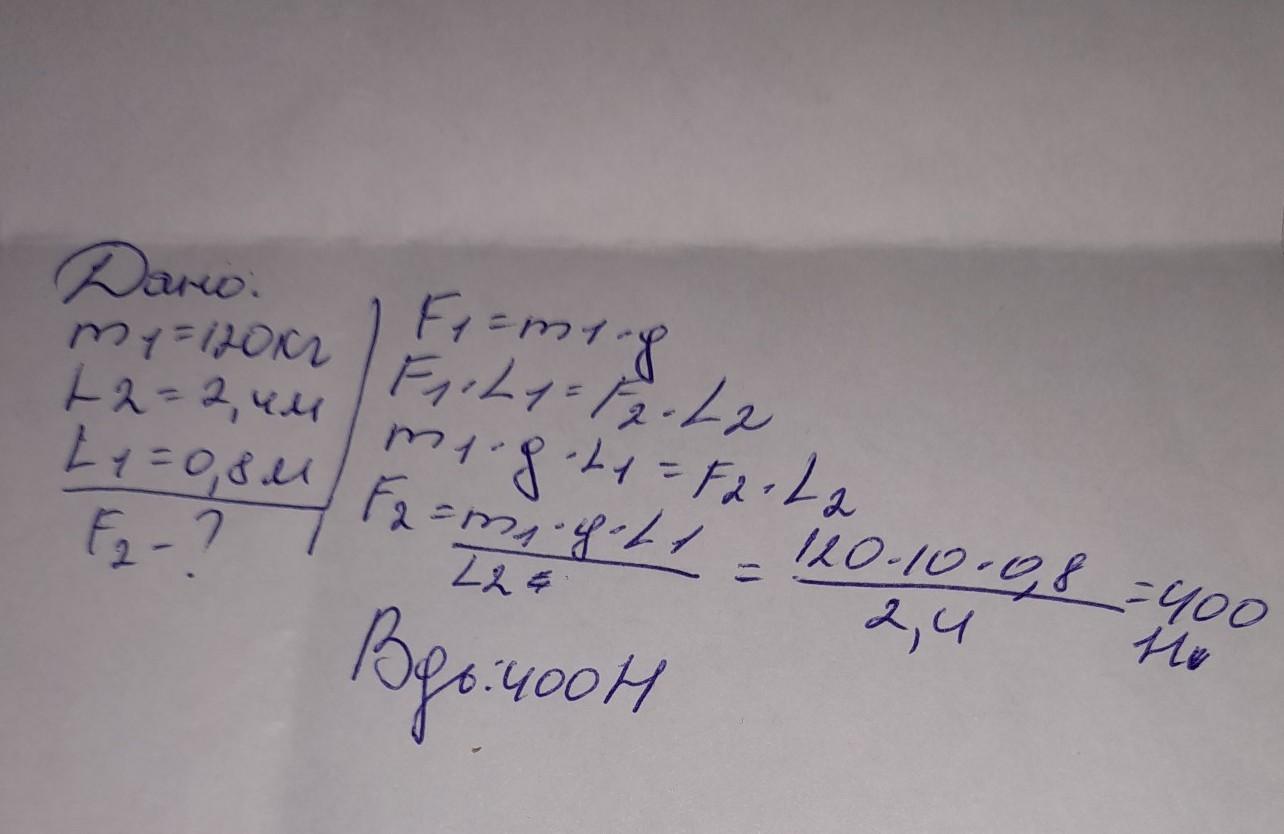 Дано:
m1=120кг
L2=2,4м
L1=0,8м
F2-?
F1=m1·g
F1·L1=F2·L2
m1·g·L1=F2·L2
F2=m1·g·L1/L2=120·10·0,8/2,4=400
Н
Вдь:400Н